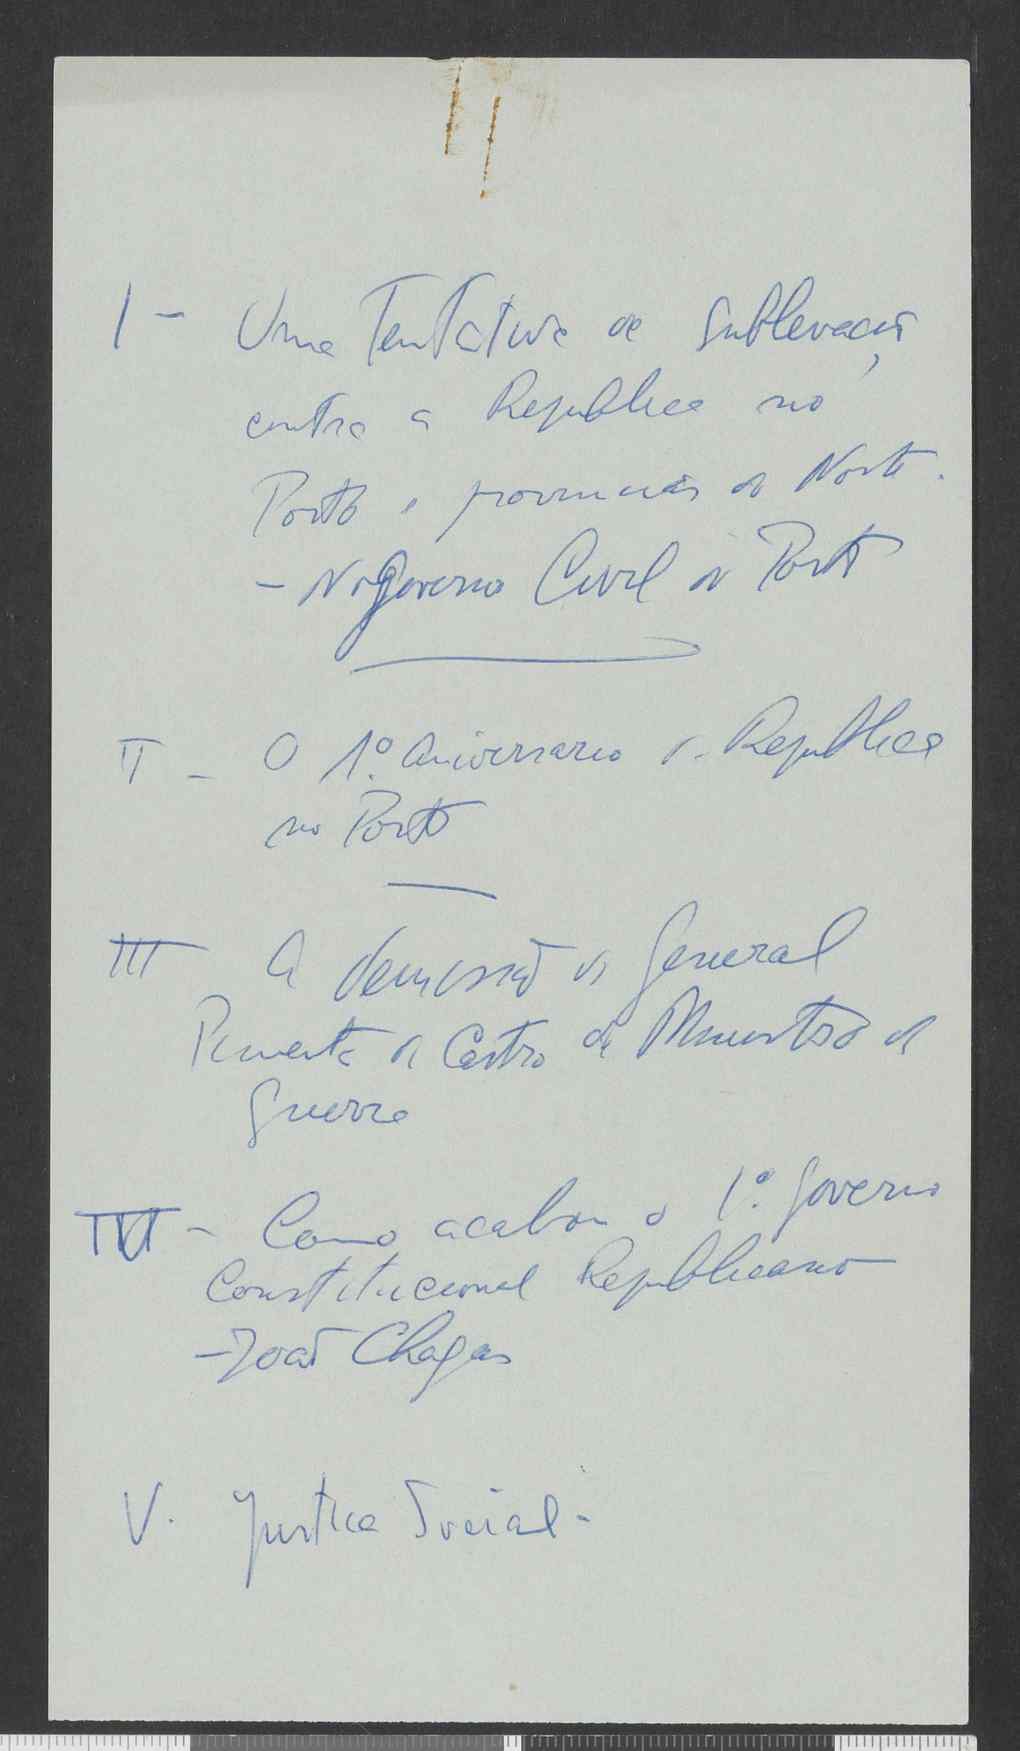 I - Uma Tentativa de Sublevação
contra a Republica no
Porto e provincias do Norte.
- No Governo Civil do Porto
II - O 1.º Aniversario da Republica
no Porto
III A demissão do General
Pimenta de Castro de Ministro da
Guerra
IV - Como acabou o 1.º Governo
Constitucional Republicano
- João Chagas
V. Justica Social -